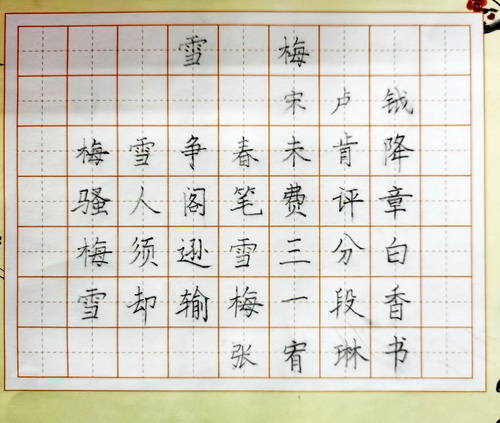 雪梅
宋卢钺
梅雪争春未肯降
骚人阁笔费评章
梅须逊雪三分白
雪却输梅一段香
张宥琳书